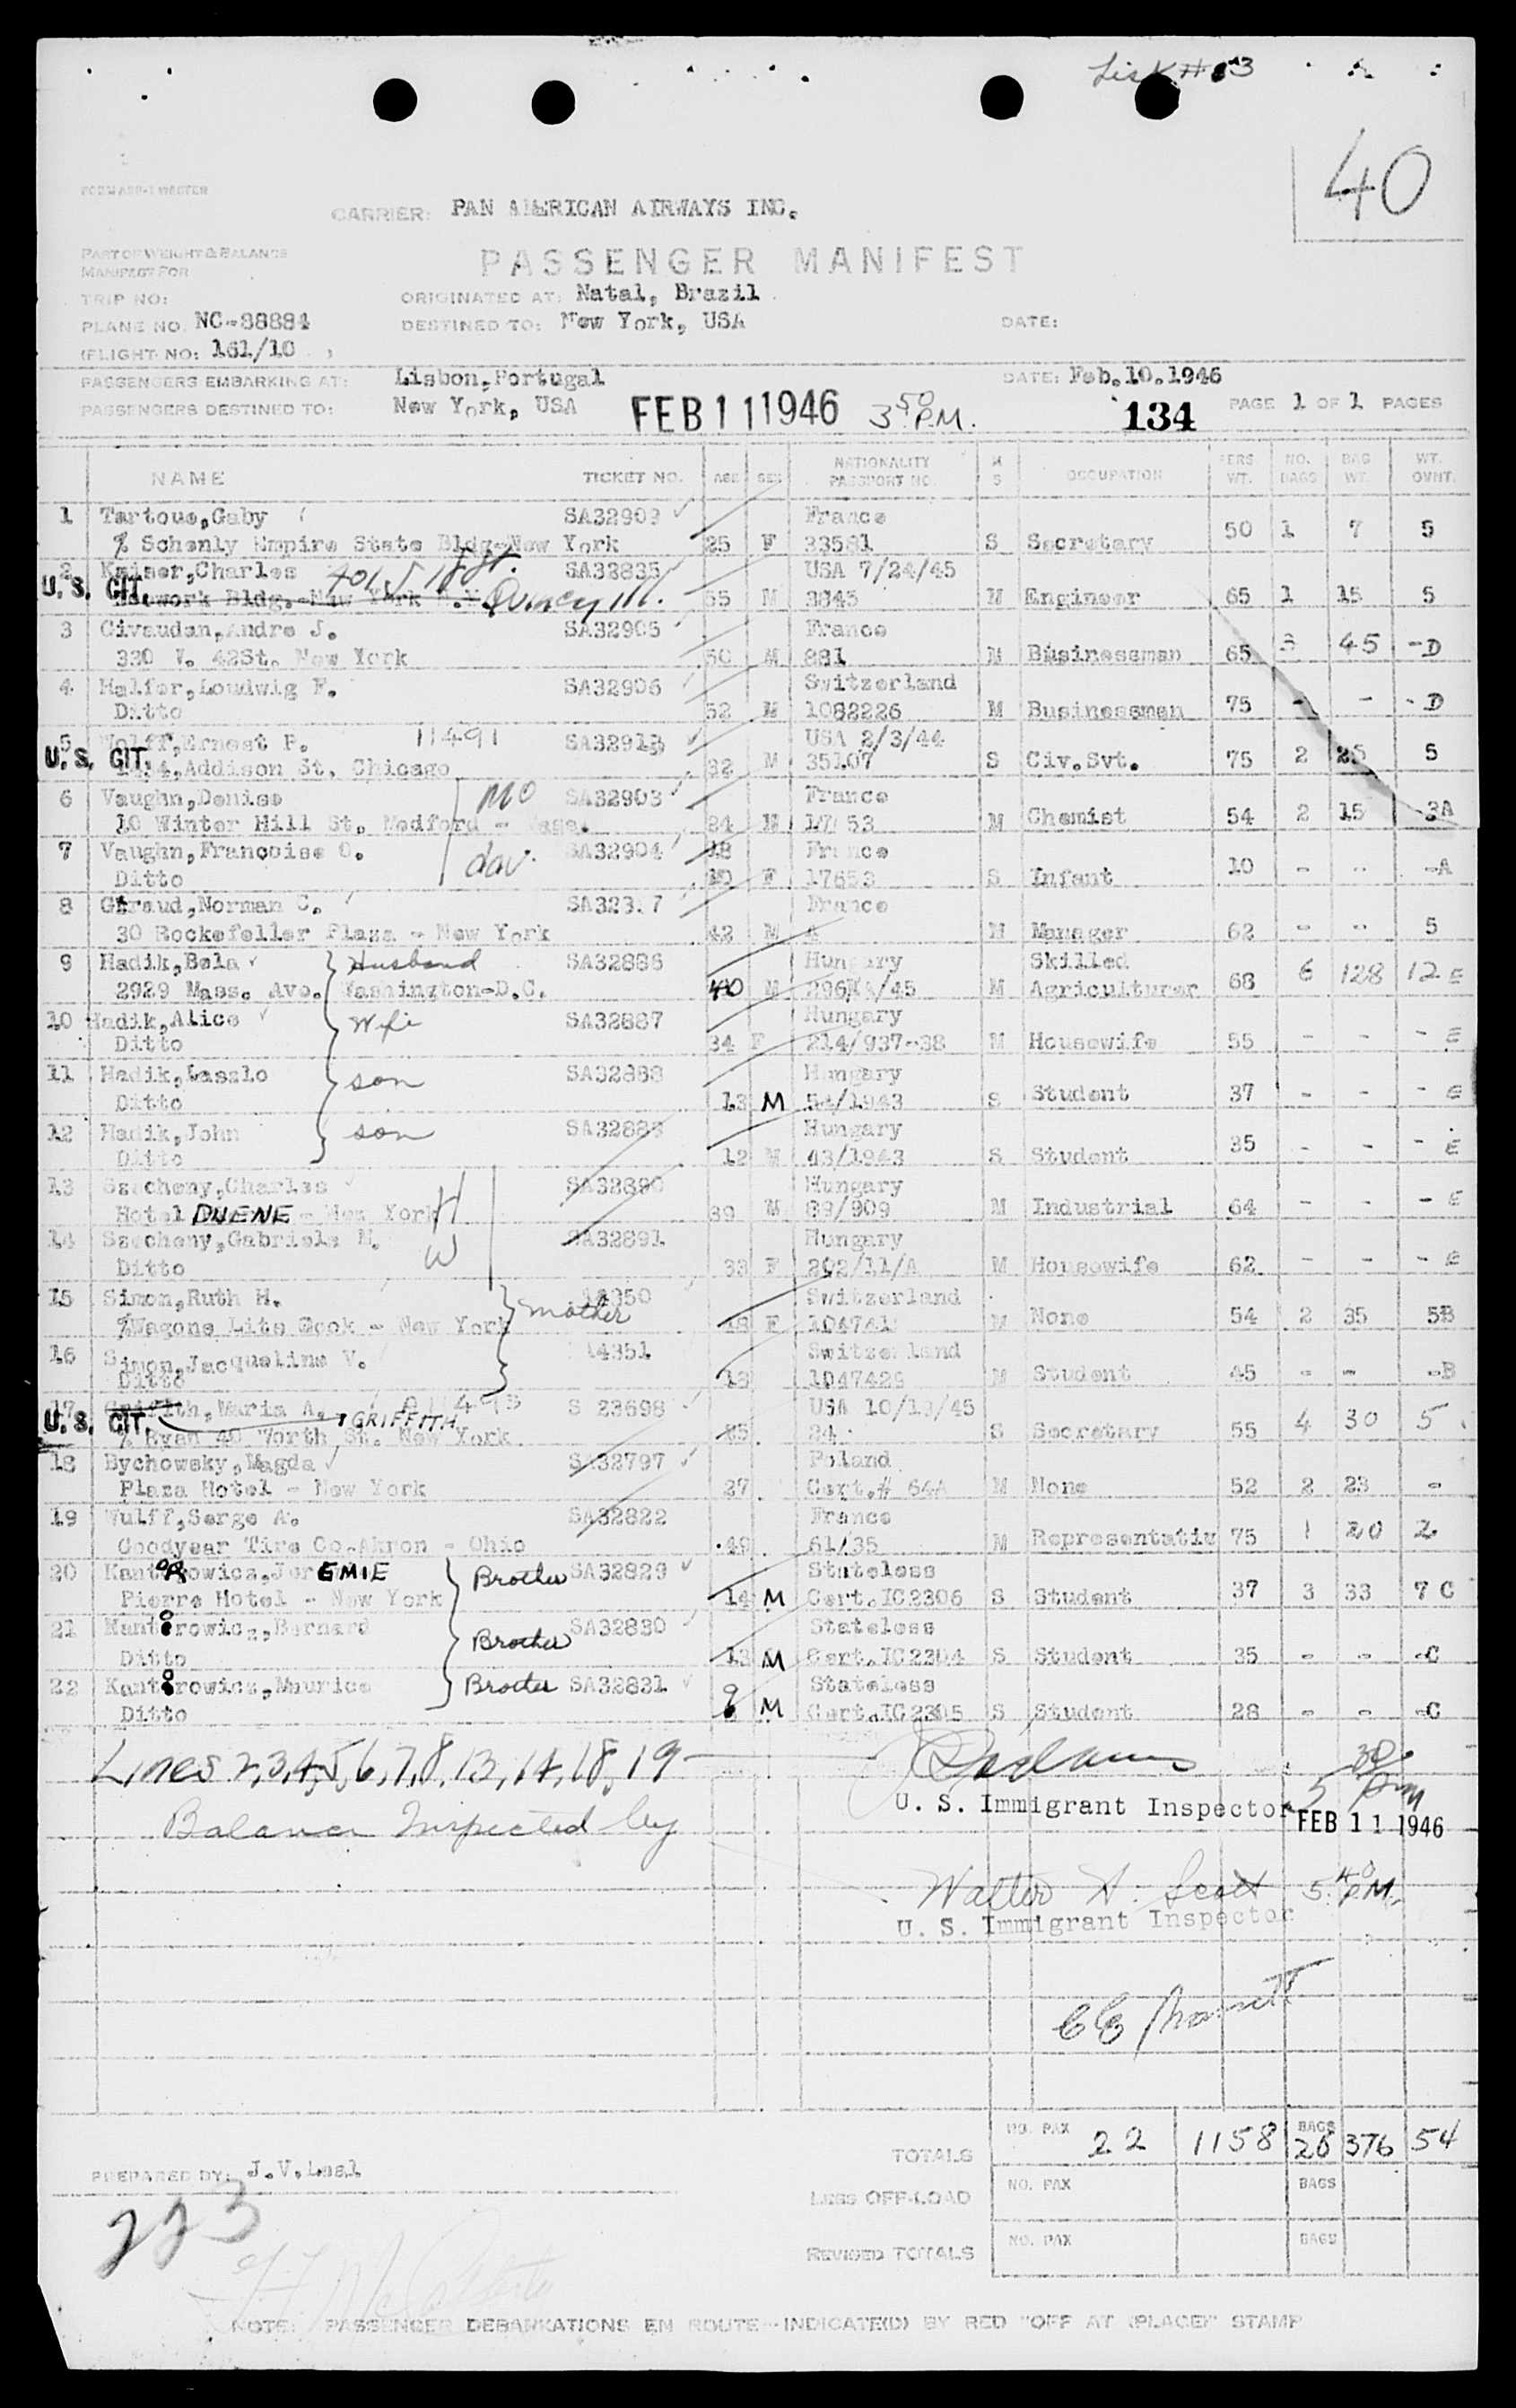 List # 83
40
FORM ABP-1 WESTER
CARRIER: PAN AMERICAN AIRWAYS INC.
PART OF WEIGHT & BALANCE
MANIFEST FOR
PASSENGER MANIFEST
TRIP NO:
ORIGINATED AT: Natal, Brazil
PLANE NO. NC-88884
DESTINED TO: New York, USA
DATE:
(FLIGHT NO: 161/10 )
PASSENGERS EMBARKING AT: Lisbon, Portugal DATE: Feb.10.1946
PASSENGERS DESTINED TO: New York, USA FEB 11 1946 3 50 P.M. 134 PAGE 1 OF 1 PAGES
NAME TICKET NO. AGE SEX NATIONALITY PASSPORT NO. M S OCCUPATION PERS. WT. NO. BAGS BAG WT. WT. OVNT.
1 Tartous,Gaby SA32909 France
% Schenly Empire State Bldg-New York 25 F 33581 S Secretary 50 1 7 5
2 Kaiser,Charles SA32835 USA 7/24/45
U. S. CIT. Bldg.-New York Quincy Ill. 55 M 3845 M Engineer 65 1 15 5
3 Civaudan,Andre J. SA32905 France
330 W. 42St. New York 50 M 881 M Businessman 65 3 45 -D
4 Halfer,Loudwig F. SA32906 Switzerland
Ditto 52 M 1082226 M Businessman 75 - - -D
5 Wolff,Ernest P. 11491 SA32913 USA 2/3/44
U. S. CIT. Addison St. Chicago 32 M 35107 S Civ.Svt. 75 2 25 5
6 Vaughn,Denise MO SA32903 France
10 Winter Hill St. Medford - Mass. 24 M 17653 M Chemist 54 2 15 -3A
7 Vaughn,Francoise O. dau. SA32904 18 France
Ditto 10 F 17653 S Infant 10 - - -A
8 Giraud,Norman C. France
30 Rockefeller Plaza - New York 42 M 4 M Manager 62 - - 5
9 Hadik,Bela Husband SA32886 Hungary Skilled
2929 Mass. Ave. Washington-D.C. 40 M M Agriculturer 68 6 128 12 E
10 Hadik,Alice Wife SA32887 Hungary
Ditto 34 F 214/937-38 M Housewife 55 - - - E
11 Hadik,Laszlo son SA32888 Hungary
Ditto 13 M 54/1943 S Student 37 - - - E
12 Hadik,John son SA32889 Hungary
Ditto 12 M 43/1943 S Student 35 - - - E
13 Szecheny,Charles H SA32890 Hungary
Hotel DUENE - New York 39 M 89/909 M Industrial 64 - - - E
14 Szecheny,Gabriele M. W SA32891 Hungary
Ditto 33 F 202/11/A M Housewife 62 - - - E
15 Simon,Ruth H. mother Switzerland
%Wagons Lits Cook - New York F M None 54 2 35 5B
16 Simon,Jacqueline V. Switzerland
Ditto 13 1047429 M Student 45 - - -B
17 Maria A. GRIFFITH S 23698 USA
U. S. CIT. % Ryan 40 Worth St. New York S Secretary 55 4 30 5
18 Bychowsky,Magda SA32797 Poland
Plaza Hotel - New York 27 Cert.# 64A M None 52 2 23 -
19 Wulff,Serge A. SA32822 France
Goodyear Tire Co.Akron - Ohio 49 61/35 M Representativ 75 1 20 2
20 Kantorowicz,JerEMIE Brother SA32829 Stateless
Pierre Hotel - New York 14 M Cert.IC2306 S Student 37 3 33 7 C
21 Kantorowicz,Bernard Brother SA32830 Stateless
Ditto 13 M Cert.IC2304 S Student 35 - - -C
22 Kantorowicz,Maurice Brother SA32831 Stateless
Ditto 9 M Cert.IC2305 S Student 28 - - -C
Lines 2,3,4,5,6,7,8,13,14,18,19
U. S. Immigrant Inspector 5 30 pm
FEB 11 1946
Balance Inspected by
Walter A. Scott 5 40 P.M.
U. S. Immigrant Inspector
TOTALS NO. PAX 22 1158 BAGS 28 376 54
PREPARED BY: J.V.Leal
LESS OFF-LOAD NO. PAX BAGS
223
REVISED TOTALS NO. PAX BAGS
NOTE: PASSENGER DEBARKATIONS EN ROUTE--INDICATE(D) BY RED "OFF AT (PLACE)" STAMP